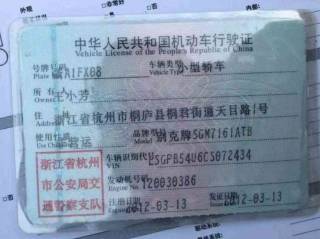 中华人民共和国机动车行驶证
Vehicle License of the People's Republic of China
号牌号码 A1FX88 车辆类型 小型轿车
所有人 王小芳
住址 浙江省杭州市桐庐县桐君街道天目路1号
使用性质 营运 品牌型号 别克牌SGM7161ATB
浙江省杭州
市公安局交
通警察支队
车辆识别代号 LSGPB54U6CS072434
发动机号码 120030386
注册日期 2012-03-13 发证日期 2012-03-13